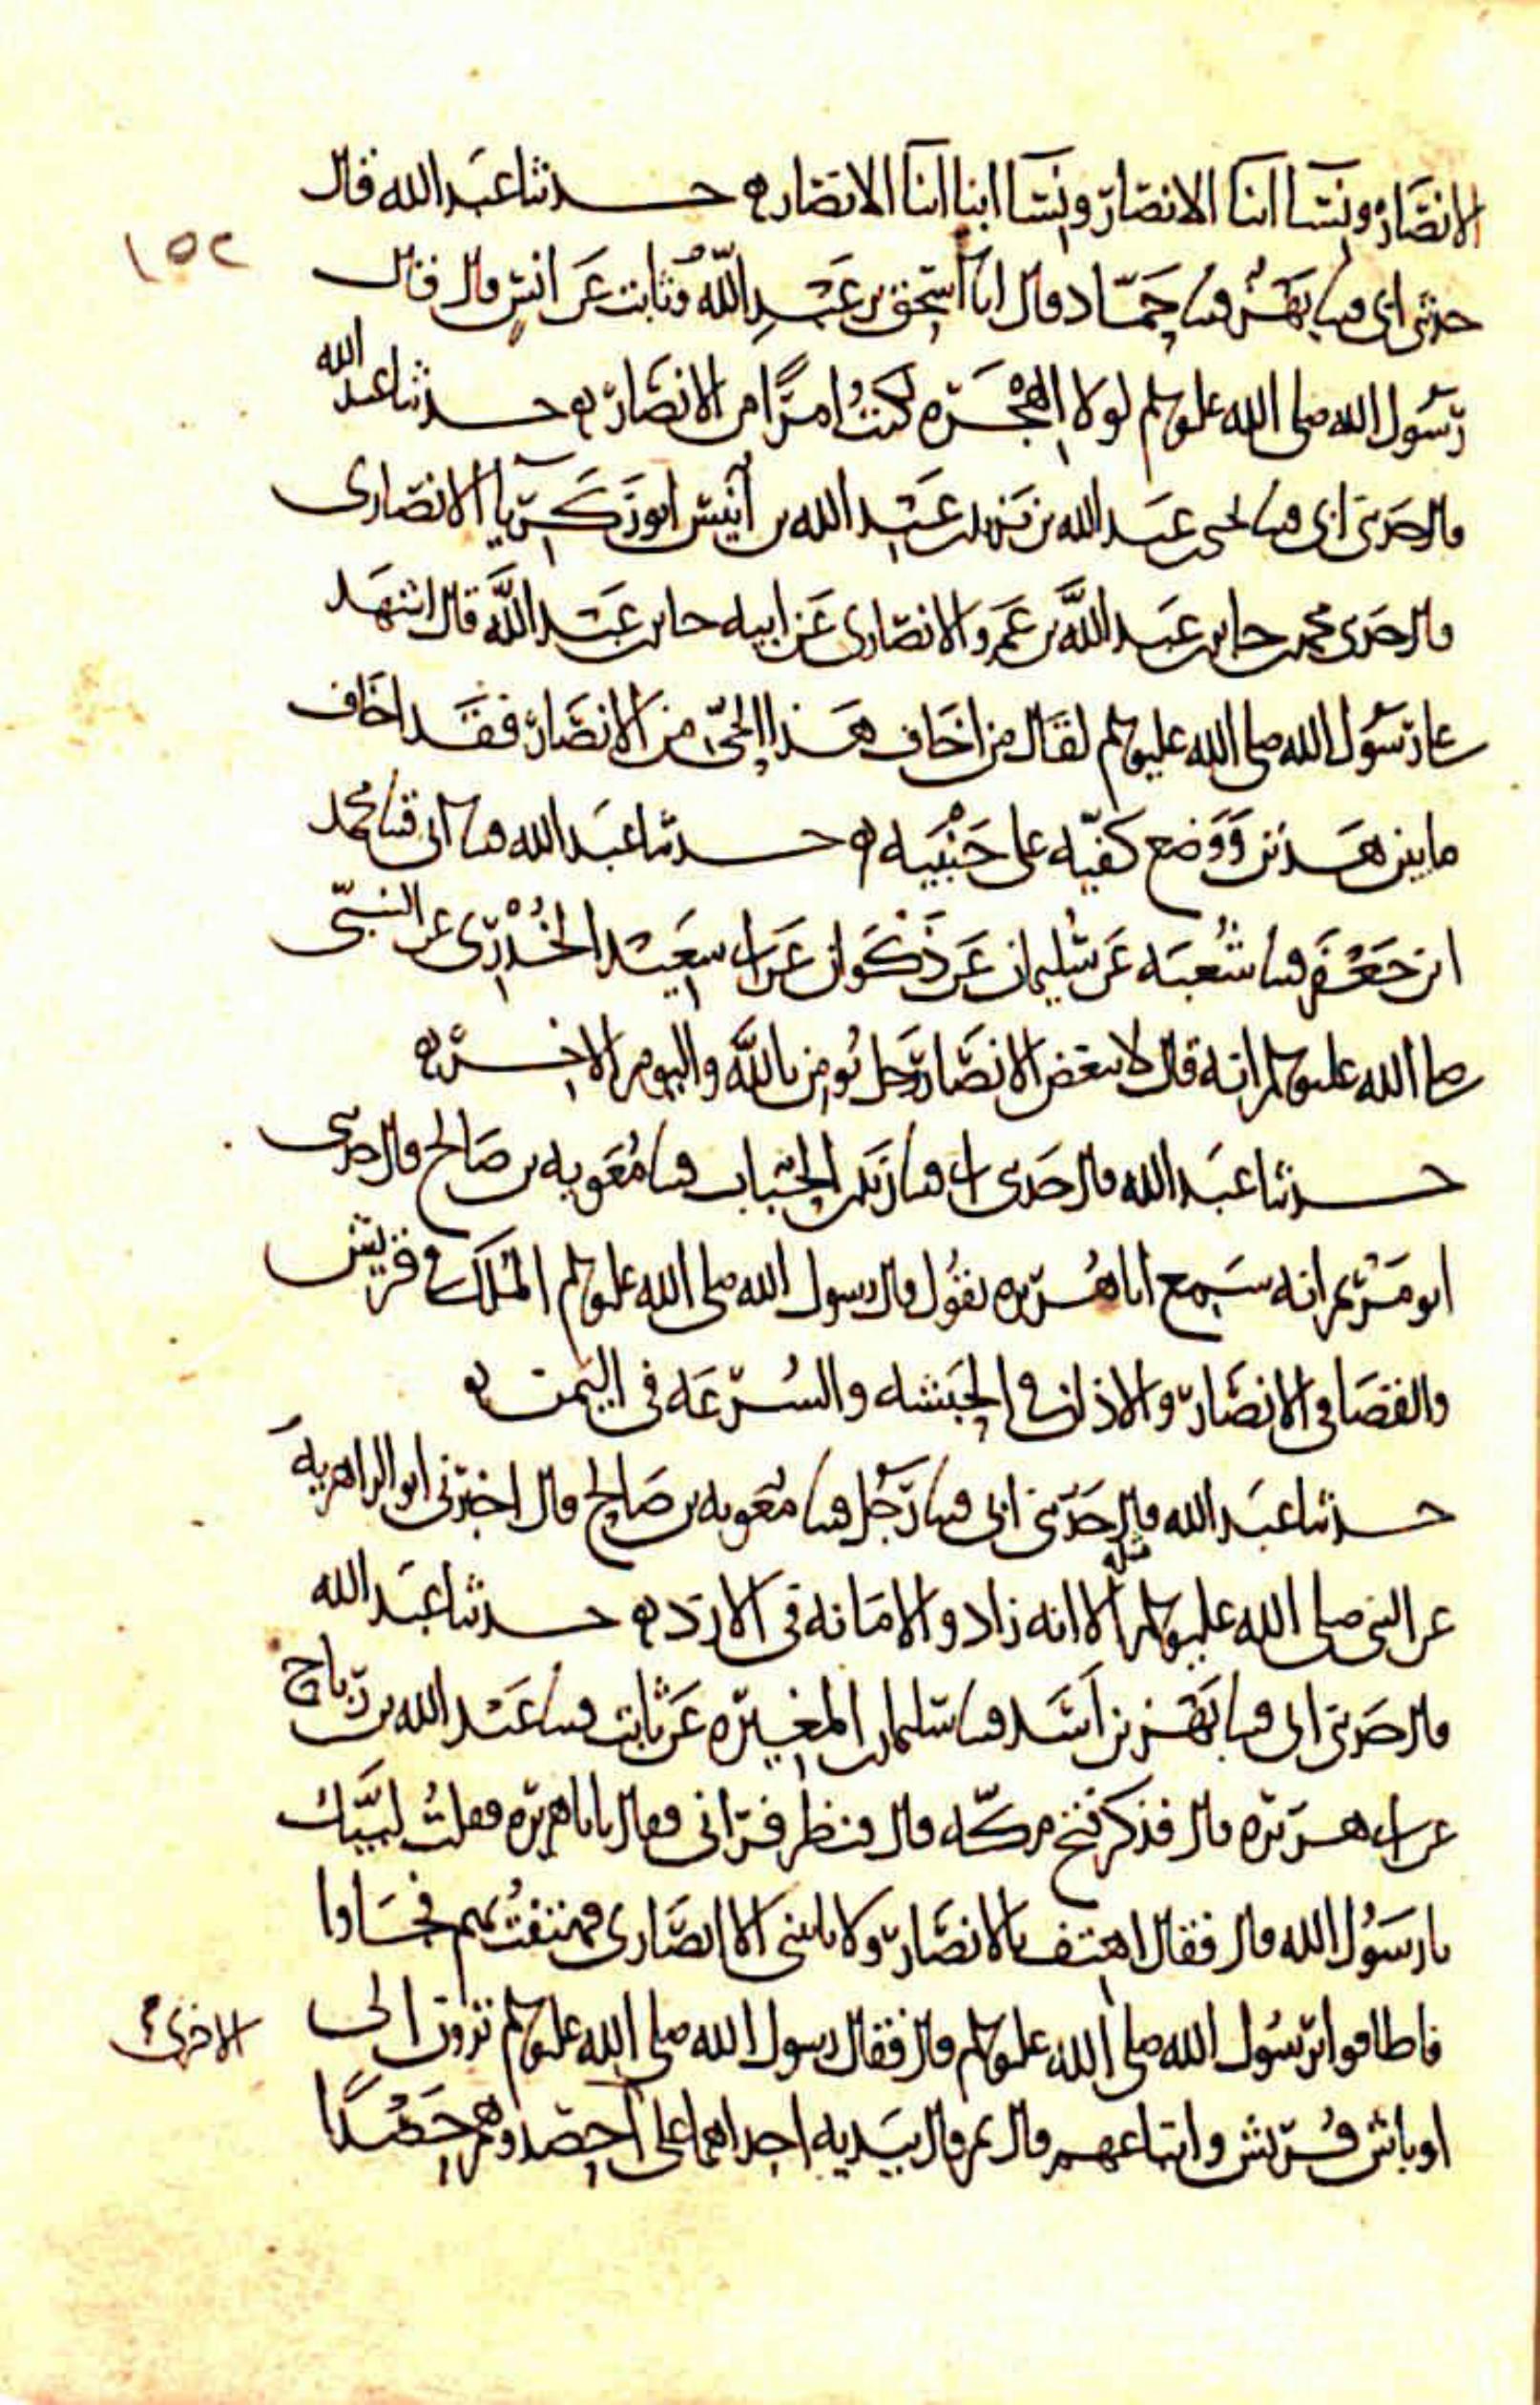 الانصار ونسا ابنا الانصار ونسا ابنا ابنا الانصار ه حدثنا عبد الله قال
١٥٢
حدثنى ابى قثنا بهز قثنا حماد قال انا اسحق بن عبد الله وثابت عن انس قال قال
رسول الله صلى الله عليه وسلم لولا الهجره لكنت امرًا من الانصار ه حدثنا عبد الله
قال حدثنى ابى قثنا يحيى بن عبد الله بن يزيد بن عبد الله بن انيس ابو زكريا الانصارى
قال حدثنى محمد بن جابر بن عبد الله بن عمرو الانصارى عن ابيه جابر بن عبد الله قال اشهد
على رسول الله صلى الله عليه وسلم لقال من اخاف هذا الحىّ من الانصار فقد اخاف
ما بين هذين وَوَضع كفيّه على جَنْبَيه ه حدثنا عبد الله قثنا ابى قثنا محمد
ابن جعفر قثنا شعبه عن سليمان عن ذكوان عن ابى سعيد الخُدْرِى عن النبىّ
صلى الله عليه وسلم انه قال لا يبغض الانصار رجل يُومن بالله واليوم الاخر ه
حدثنا عبد الله قال حدثنى ابى قثنا زيد بن الحباب قثنا معويه بن صالح قال حدثنى
ابو مريم انه سمع ابا هريره يقول قال رسول الله صلى الله عليه وسلم الملك فى قريش
والقضا فى الانصار والاذان فى الحبشه والسرعه فى اليمن ه
حدثنا عبد الله قال حدثنى ابى قثنا رجل قثنا معويه بن صالح قال اخبرنى ابو الزاهريه
عن النبى صلى الله عليه وسلم مثله الا انه زاد والامانه فى الازد ه حدثنا عبد الله
قال حدثنى ابى قثنا بهز بن اسد قثنا سليمان بن المغيره عن ثابت قثنا عبد الله بن رباح
عن ابى هريره قال فذكر فتح مكّه قال فنظر فرآنى فقال يابا هريره فقلتُ لبيّك
يا رسول الله قال فقال اهتف بالانصار ولا ياتينى الا انصارى فهتفتُ بهم فجاوا
فاطافوا برسول الله صلى الله عليه وسلم قال فقال رسول الله صلى الله عليه وسلم ترون الى
اوباش قريش واتباعهم قال ثم قال بيديه احداهما على احصدوهم حَصْدًا
الاخرى